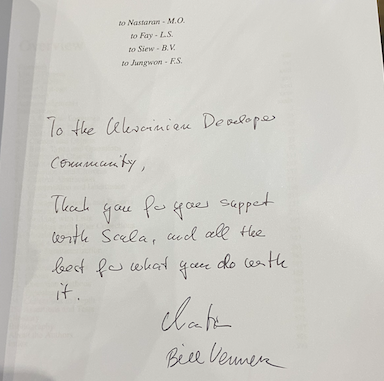 to Nastaran - M.O.
to Fay - L.S.
to Siew - B.V.
to Jungwon - F.S.
To the Ukrainian Developer
Community,
Thank you for your support
with Scala, and all the
best for what you do with
it.
Martin
Bill Venners